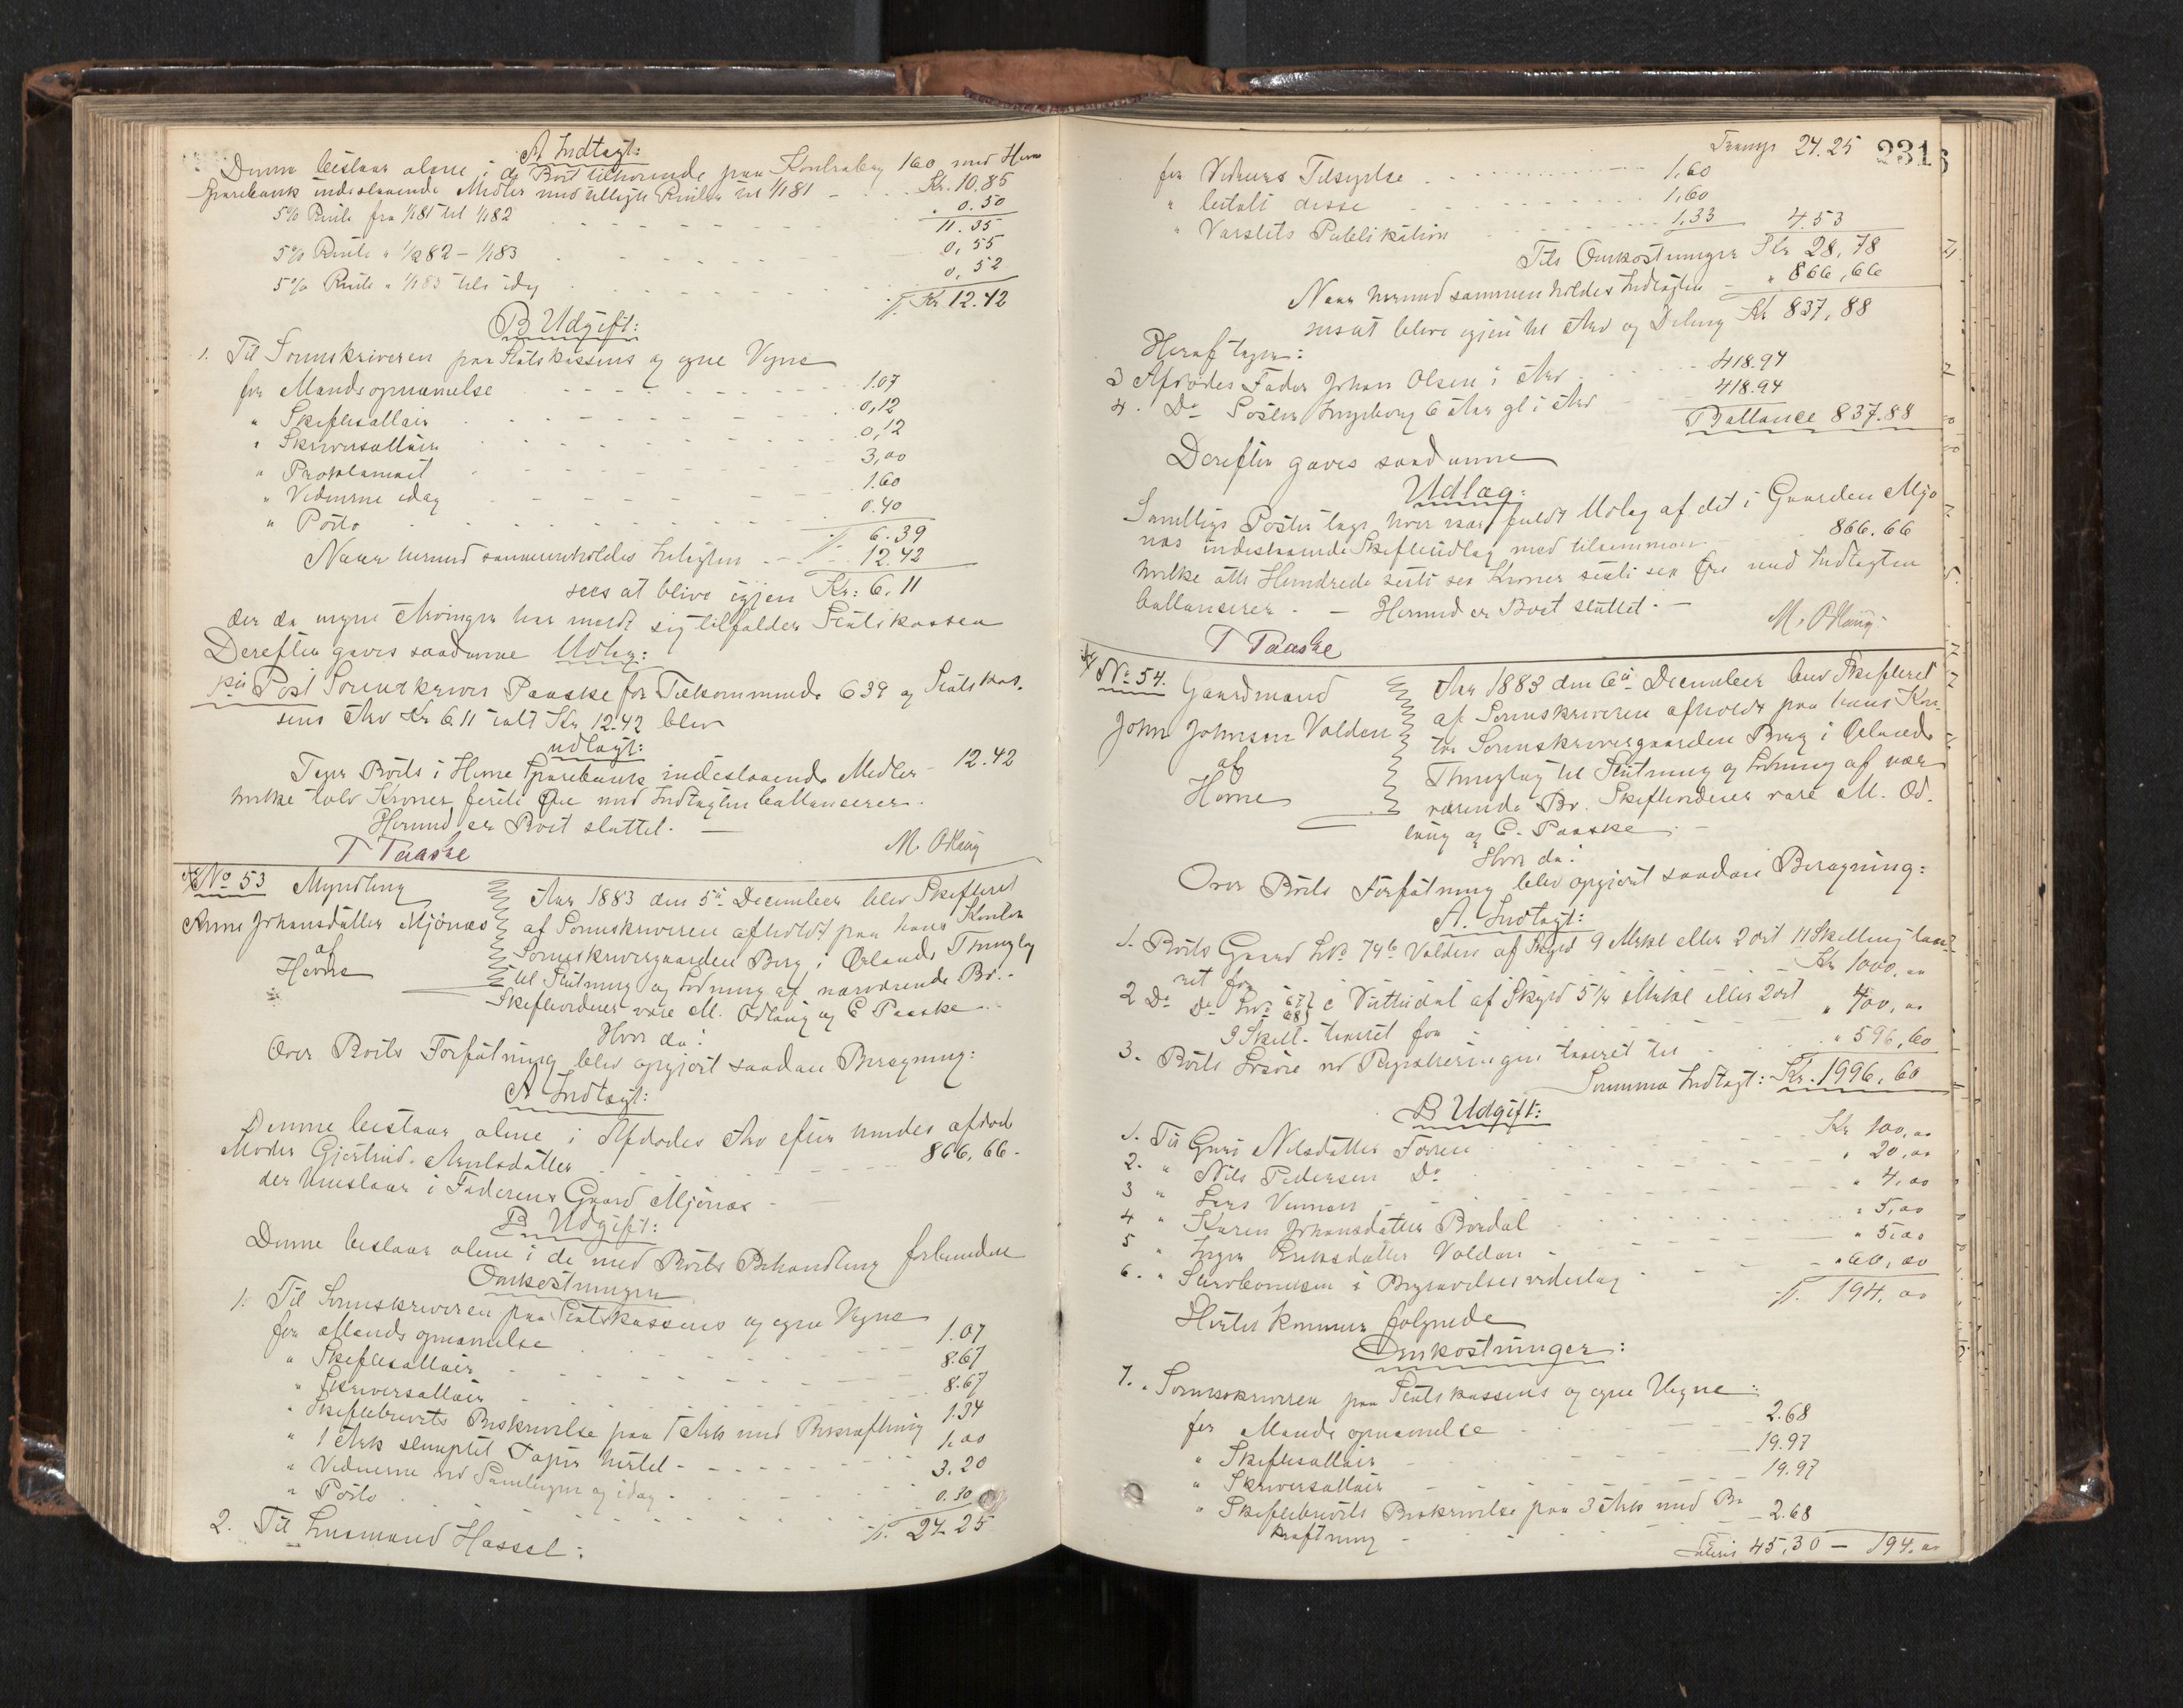 A Indtægt:
Denne bestaar alene i de Boet tilhørende paa Kontrabog 160 med Hevne
Sparebank indestaaende Midler med tillagte Renter til 1/1 81 - Kr. 10.85
5% Rente fra 1/1 81 til 1/1 82 0.50
11.35
5% Rente " 1/1 82 - 1/1 83 0,55
5% Rente " 1/1 83 til idag 0,52
T. Kr 12.42
B Udgift:
1. Til Sorenskriveren paa Statskassens og egne Vegne
for Mandsopnævnelse 1.07
" Skiftesallair 0,12
" Skriversallair 0,12
" Proklamaet 3,00
" Vidnerne idag 1.60
" Porto 0.40
T. 6.39
Naar hermed sammenholdes Indtægten 12.42
sees at blive igjen Kr: 6.11
der da ingen Arvinger har meldt sig tilfalder Statskassen
Derefter gaves saadanne Udlæg:
pii Post Sorenskriver Paaske for Tilkommende 639 og Statskas-
sens Arv Kr 6.11 ialt Kr. 12.42 blev
udlagt:
Tager Boets i Hevne Sparebank indestaaende Midler - 12.42
hvilke tolv Kroner firti Øre med Indtægten ballancerer.
Hermed er Boet sluttet. -
T Paaske M. Ødlaug
No 53 Myndling
Anne Johansdatter Mjønæs
af
Hevne
Aar 1883 den 5te December blev Skifteret
af Sorenskriveren afholdt paa hans Kontor
Sorenskrivergaarden Berg i Ørlands Thinglag
til Slutning og Lodning af nærværende Bo. -
Skiftevidner vare M. Ødlaug og E Paaske -
Hvor da:
Over Boets Forfatning blev opgjort saadan Beregning:
A Indtægt:
Denne bestaar alene i Afdødes Arv efter hendes afdøde
Moder Gjertrud Arntsdatter 866,66.
der henstaar i Faderens Gaard Mjønæs -
B Udgift:
Denne bestaar alene i de med Boets Behandling forbundne
Omkostninger
1. Til Sorenskriveren paa Statskassens og egne Vegne
for Mandsopnævnelse 1.07
" Skiftesallair 8.67
" Skriversallair 8.67
" Skiftebrevets Beskrivelse paa 1 Ark med Bekræftning 1.34
" 1 Ark stemplet Papir hertil 1.00
" Vidnerne ved Samlingen og idag 3.20
" Porto 0.30
T. 24.25
2. Til Lensmand Hassel:
Transp 24.25 231
for Vidners Tilsigelse 1,60
" betalt disse 1,60
" Varslets Publikation 1,33 4.53
Tils Omkostninger Kr 28,78
Naar hermed sammenholdes Indtægten - " 866,66
sees at blive igjen til Arv og Deling Kr 837,88
Heraf tager:
3 Afdødes Fader Johan Olsen i Arv 418.94
4. Do Søster Ingeborg 6 Aar gl i Arv 418.94
Ballance 837.88
Derefter gaves saadanne
Udlæg:
Samtlige Poster tage hver især fuldt Udlæg af det i Gaarden Mjø
næs indestaaende Skifteudlæg med tilsammen 866.66
hvilke otte Hundrede sexti sex Kroner sexti sex Øre med Indtægten
ballancerer. - Hermed er Boet sluttet. -
T Paaske M. Ødlaug
No 54. Gaardmand
John Johnsen Valden
af
Hevne
Aar 1883 den 6te December blev Skifteret
af Sorenskriveren afholdt paa hans Kon-
tor Sorenskrivergaarden Berg i Ørlands
Thinglag til Slutning og Lodning af nær-
værende Bo. Skiftevidner vare M. Ød-
laug og E. Paaske. -
Hvor da:
Over Boets Forfatning blev opgjort saadan Beregning:
A. Indtægt:
1. Boets Gaard LNo 74b Valden af Skyld 9 Mrkl eller 2 ort 11 Skilling tax-
ret for Kr 1000,00
2 Do Do LNo 67 68 c Vitteidal af Skyld 5 1/4 Mrkl eller 2 ort
3 Skill. taxeret for " 400,00
3. Boets Løsøre ved Registreringen taxeret til " 596,60
Summa Indtægt: Kr. 1996,60
B Udgift:
1. Til Guri Nilsdatter Forren Kr 100,00
2. " Nils Pedersen Do " 20,00
3 " Lars " 4,00
4 " Karen Johansdatter Bredal " 5,00
5 " Inger Eriksdatter Valdan " 5,00
6. " Stervboenken i Begravelsesvederlag " 60,00
T. 194.00
Hertil kommer følgende
Omkostninger:
7. " Sorenskriveren paa Statskassens og egne Vegne:
for Mands opnævnelse 2.68
" Skiftesallair 19.97
" Skriversallair 19.97
" Skiftebrevets Beskrivelse paa 3 Ark med Be
kræftning - 2.68
Lateris 45.30 - 194.00